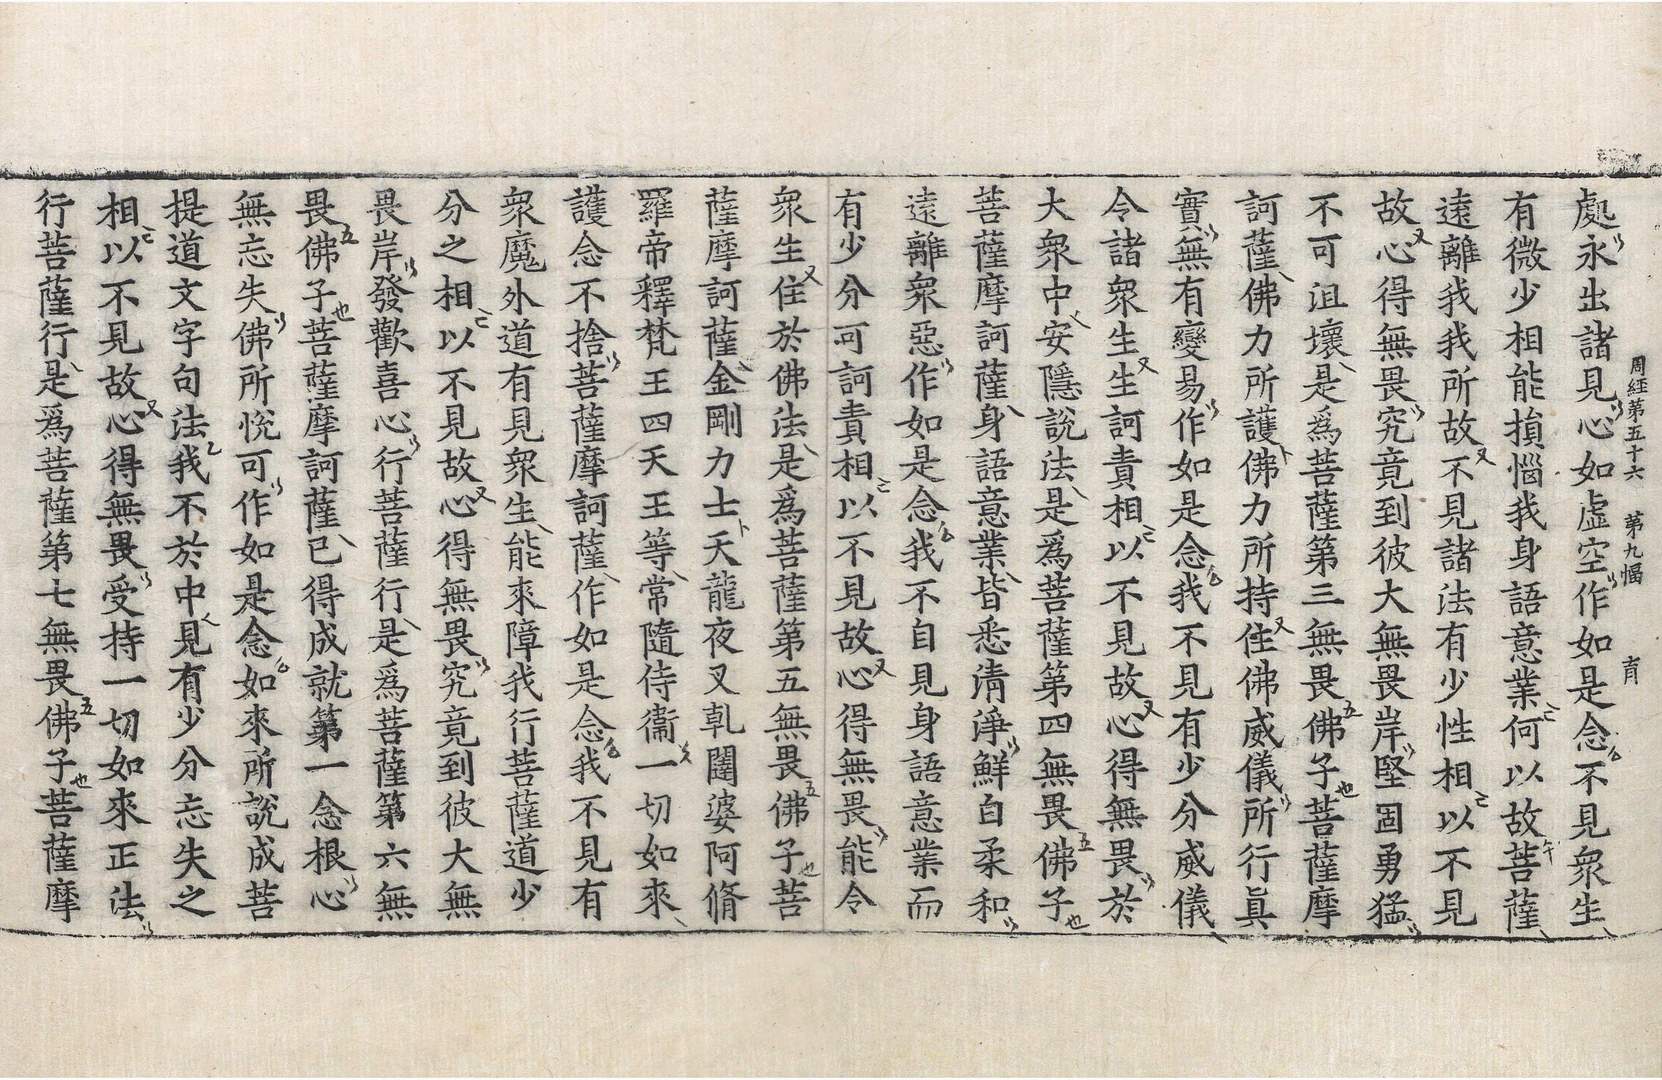 周經第五十六 第九幅 育
處永出諸見心如虛空作如是念不見衆生
有微少相能損惱我身語意業何以故菩薩
遠離我我所故不見諸法有少性相以不見
故心得無畏究竟到彼大無畏岸堅固勇猛
不可沮壞是爲菩薩第三無畏佛子菩薩摩
訶薩佛力所護佛力所持住佛威儀所行眞
實無有變易作如是念我不見有少分威儀
令諸衆生生訶責相以不見故心得無畏於
大衆中安隱說法是爲菩薩第四無畏佛子
菩薩摩訶薩身語意業皆悉清淨鮮白柔和
遠離衆惡作如是念我不自見身語意業而
有少分可訶責相以不見故心得無畏能令
衆生住於佛法是爲菩薩第五無畏佛子菩
薩摩訶薩金剛力士天龍夜叉乹闥婆阿脩
羅帝釋梵王四天王等常隨侍衞一切如來
護念不捨菩薩摩訶薩作如是念我不見有
衆魔外道有見衆生能來障我行菩薩道少
分之相以不見故心得無畏究竟到彼大無
畏岸發歡喜心行菩薩行是爲菩薩第六無
畏佛子菩薩摩訶薩已得成就第一念根心
無忘失佛所悅可作如是念如來所說成菩
提道文字句法我不於中見有少分忘失之
相以不見故心得無畏受持一切如來正法
行菩薩行是爲菩薩第七無畏佛子菩薩摩